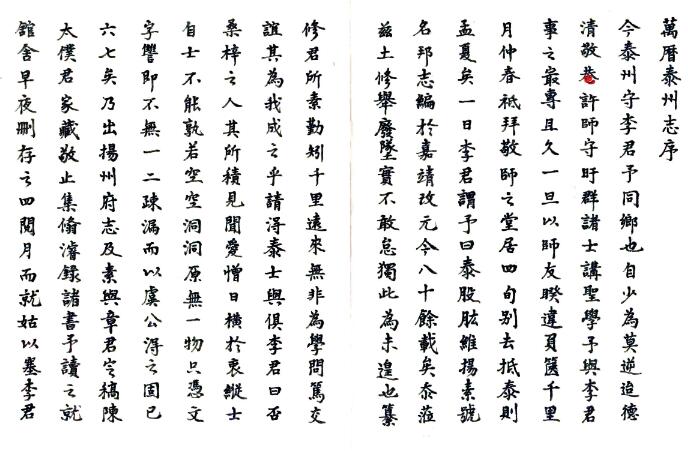 萬曆泰州志序
今泰州守李君予同鄉也自少為莫逆迨德
清敬菴許師守盱群諸士講聖學予與李君
事之最專且久一旦以師友睽違負篋千里
月仲春祗拜敬師之堂居四旬別去抵泰則
孟夏矣一日李君謂予曰泰股肱維揚素號
名邦志編於嘉靖改元今八十餘載矣忝蒞
茲土修舉廢墜實不敢怠獨此為未遑也纂
修君所素勤矧千里遠來無非為學問篤交
誼其為我成之乎請得泰士與俱李君曰否
桑梓之人其所積見聞愛憎日橫於衷縱士
自士不能孰若空空洞洞原無一物只憑文
字讐即不無一二疎漏而以虞公得之固已
六七矣乃出揚州府志及素與章君定稿陳
太僕君家藏敬止集脩濬錄諸書予讀之就
館舍早夜刪存之四閱月而就姑以塞李君